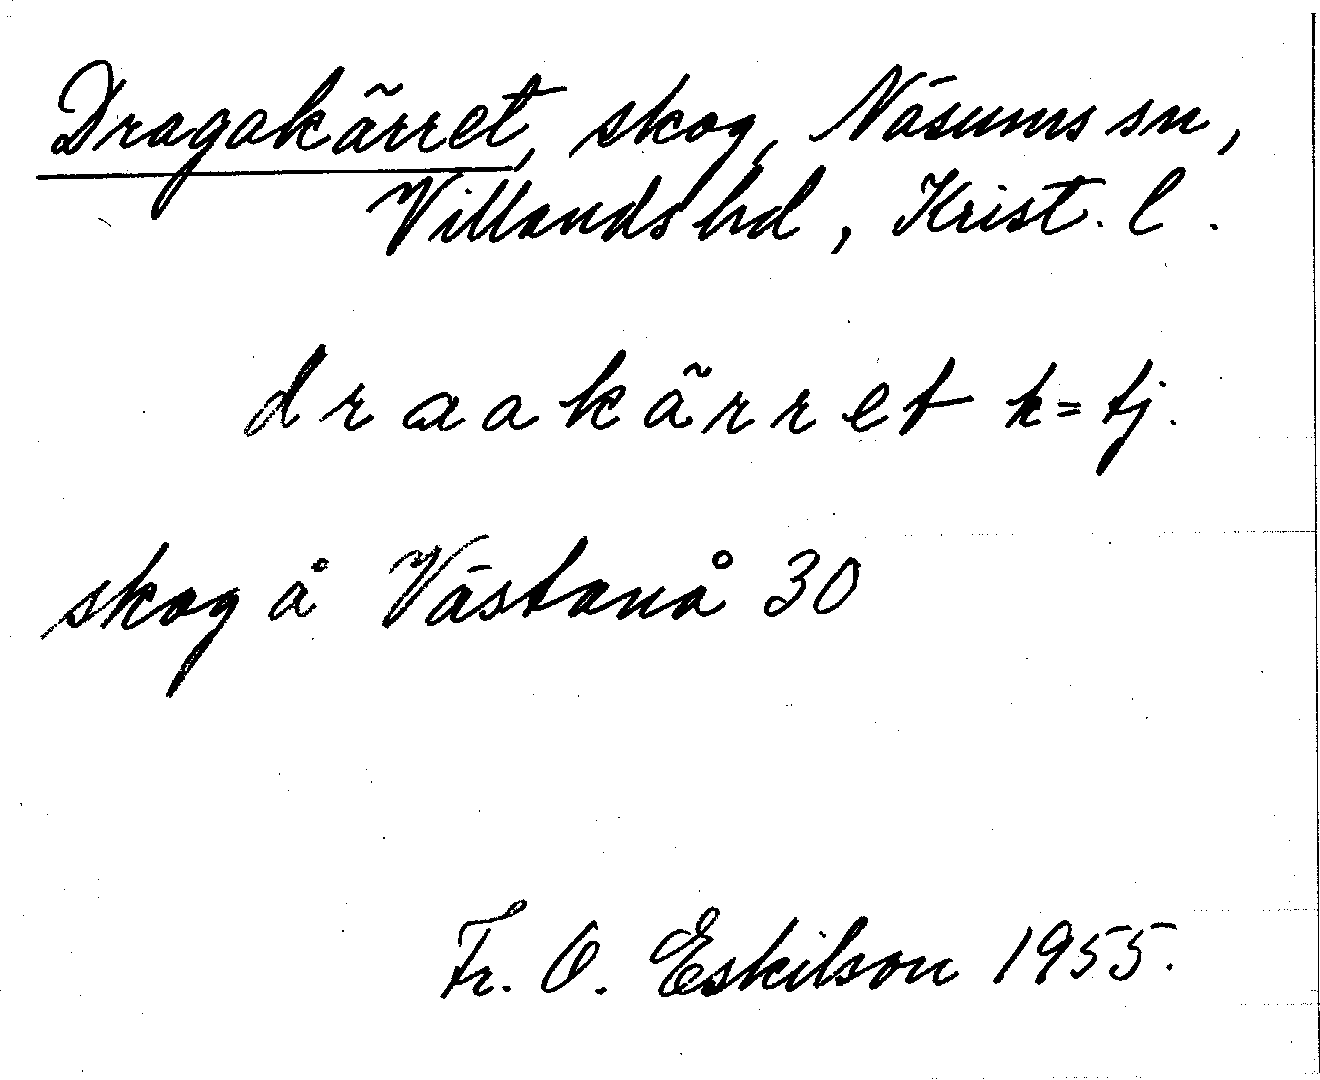 Dragakärret, skog, Näsums sn,
Villands hd, Krist. l.
draakärret k=tj.
skog å Västanå 30
Fr. O. Eskilson 1955.